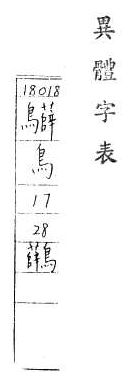 異體字表
18018
鳥
17
28